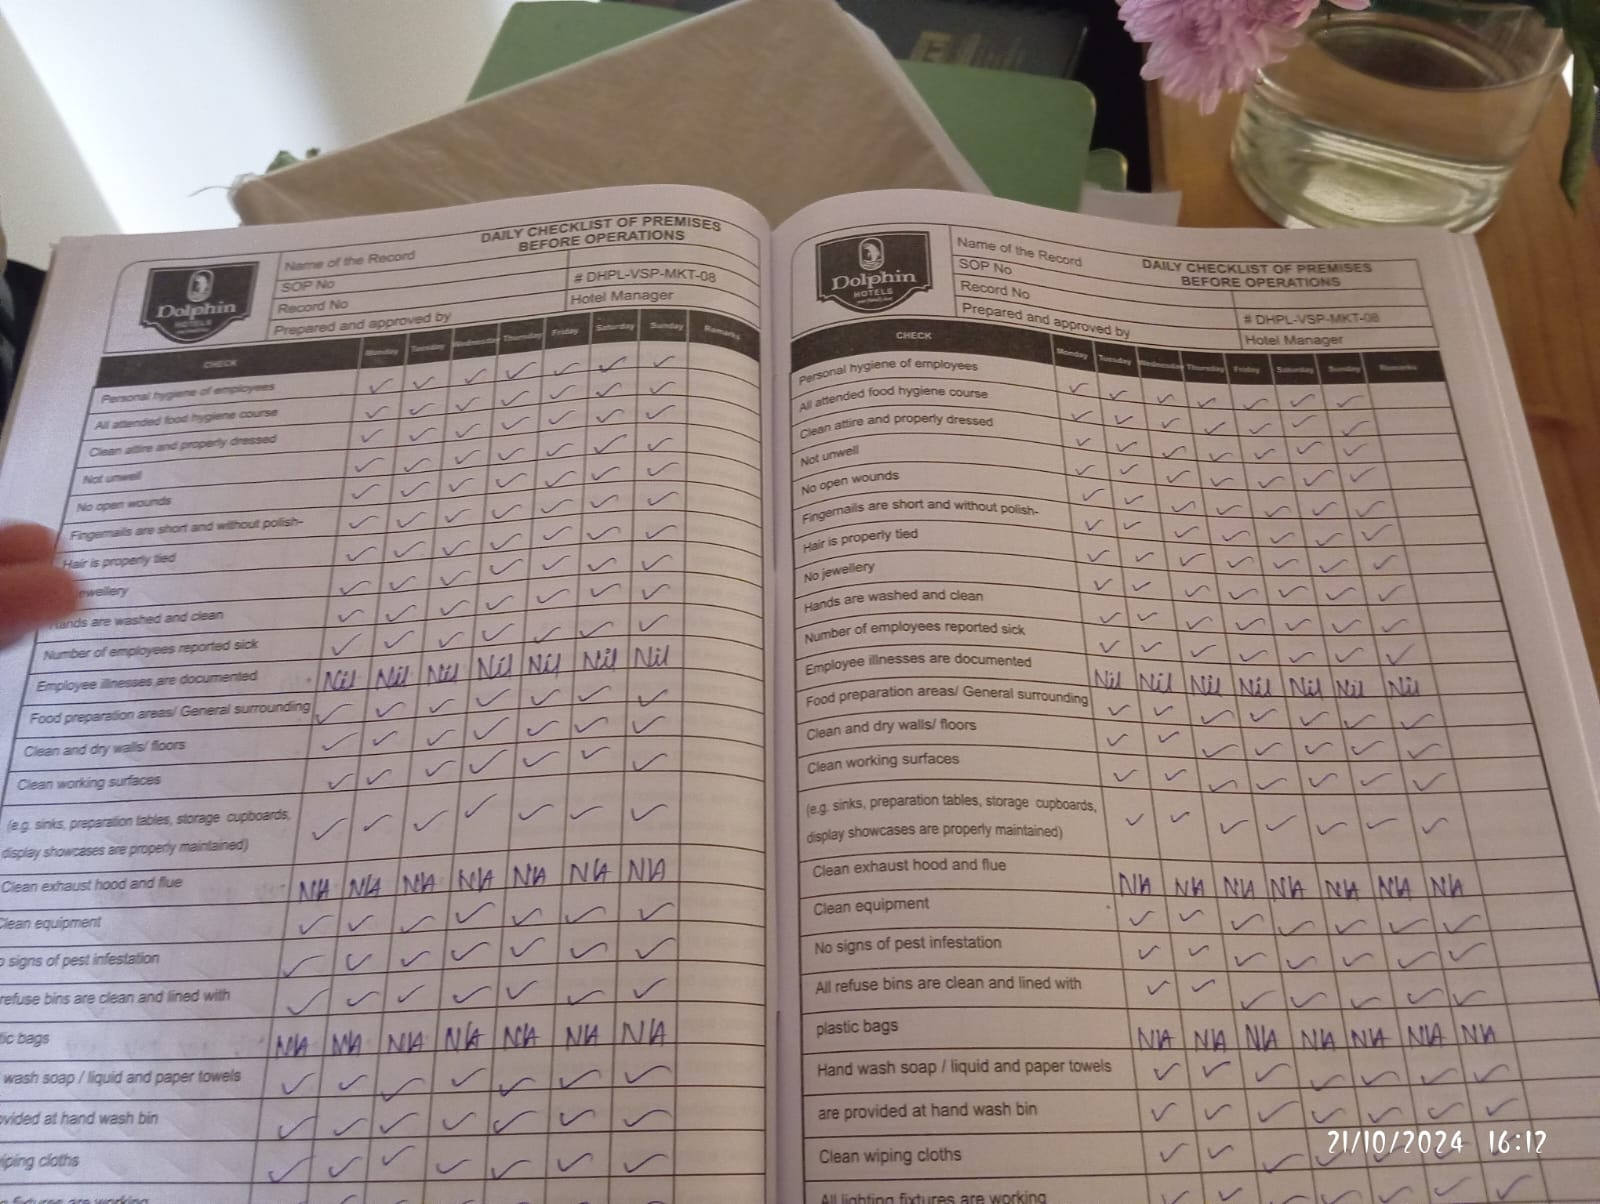 Dolphin
HOTELS
Name of the Record
DAILY CHECKLIST OF PREMISES
BEFORE OPERATIONS
SOP No
Record No
# DHPL-VSP-MKT-08
Prepared and approved by
Hotel Manager
CHECK Monday Tuesday Wednesday Thursday Friday Saturday Sunday Remarks
Personal hygiene of employees
All attended food hygiene course
Clean attire and properly dressed
Not unwell
No open wounds
Fingernails are short and without polish-
Hair is properly tied
ewellery
ands are washed and clean
Number of employees reported sick
Employee illnesses are documented Nil Nil Nil Nil Nil Nil Nil
Food preparation areas/ General surrounding
Clean and dry walls/ floors
Clean working surfaces
(e.g. sinks, preparation tables, storage cupboards,
display showcases are properly maintained)
Clean exhaust hood and flue NA NA NA NA NA NA NA
Clean equipment
o signs of pest infestation
refuse bins are clean and lined with
tic bags NA NA NA NA NA NA NA
wash soap / liquid and paper towels
ovided at hand wash bin
iping cloths
fixtures are working
Dolphin
HOTELS
Name of the Record
DAILY CHECKLIST OF PREMISES
BEFORE OPERATIONS
SOP No
Record No
# DHPL-VSP-MKT-08
Prepared and approved by
Hotel Manager
CHECK Monday Tuesday Wednesday Thursday Friday Saturday Sunday Remarks
Personal hygiene of employees
All attended food hygiene course
Clean attire and properly dressed
Not unwell
No open wounds
Fingernails are short and without polish-
Hair is properly tied
No jewellery
Hands are washed and clean
Number of employees reported sick
Employee illnesses are documented Nil Nil Nil Nil Nil Nil Nil
Food preparation areas/ General surrounding
Clean and dry walls/ floors
Clean working surfaces
(e.g. sinks, preparation tables, storage cupboards,
display showcases are properly maintained)
Clean exhaust hood and flue NA NA NA NA NA NA NA
Clean equipment
No signs of pest infestation
All refuse bins are clean and lined with
plastic bags NA NA NA NA NA NA NA
Hand wash soap / liquid and paper towels
are provided at hand wash bin
Clean wiping cloths
All lighting fixtures are working
21/10/2024 16:12